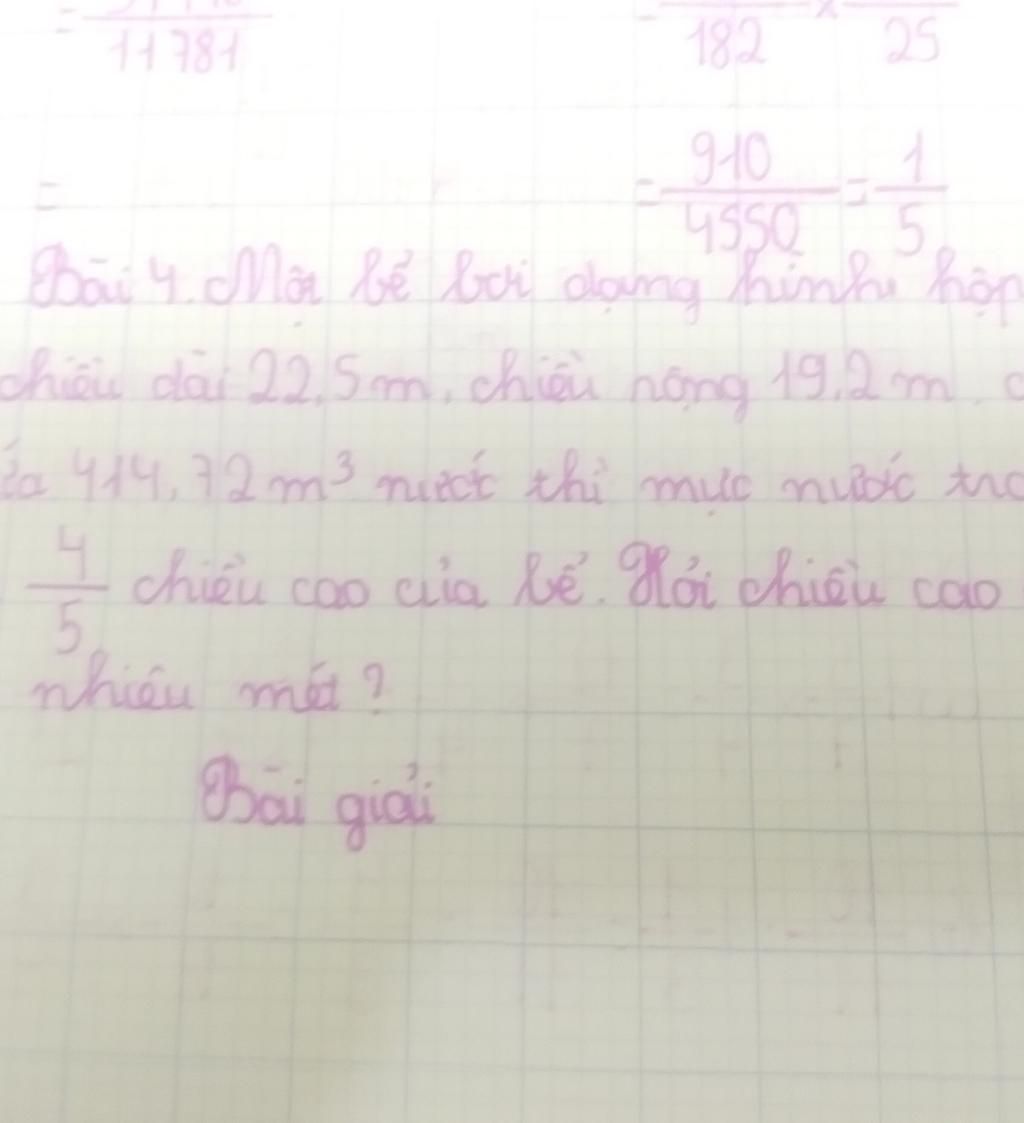 11781
182 × 25
= = 910/4550 = 1/5
Bài 4. Một bể bơi dạng hình hộp
chiều dài 22,5m, chiều rộng 19,2m
414,72m³ nước thì mực nước
4/5 chiều cao của bể. Hỏi chiều cao
nhiêu mét?
Bài giải